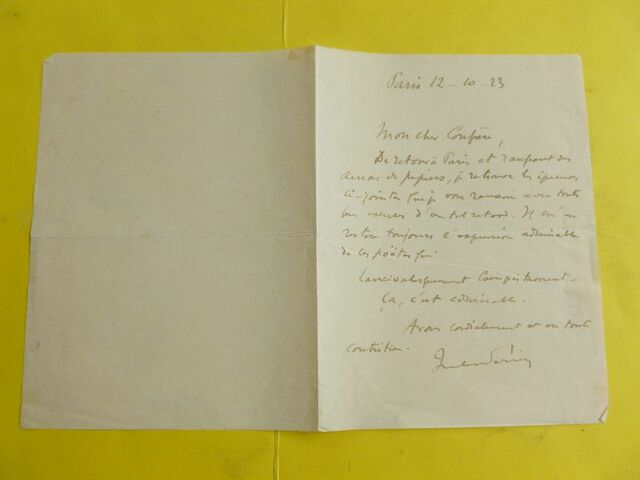 Paris 12 - 10 - 23
Mon cher Confrère,
De retour à Paris et rangeant des
amas de papiers, je retrouve les épreuves
ci-jointes que je vous renvoie avec toutes
mes excuses d'un tel retard. Il m'en
restera toujours l'expression admirable
de ces poètes qui
Ça, c'est admirable.
A vous cordialement et en toute
contrition.